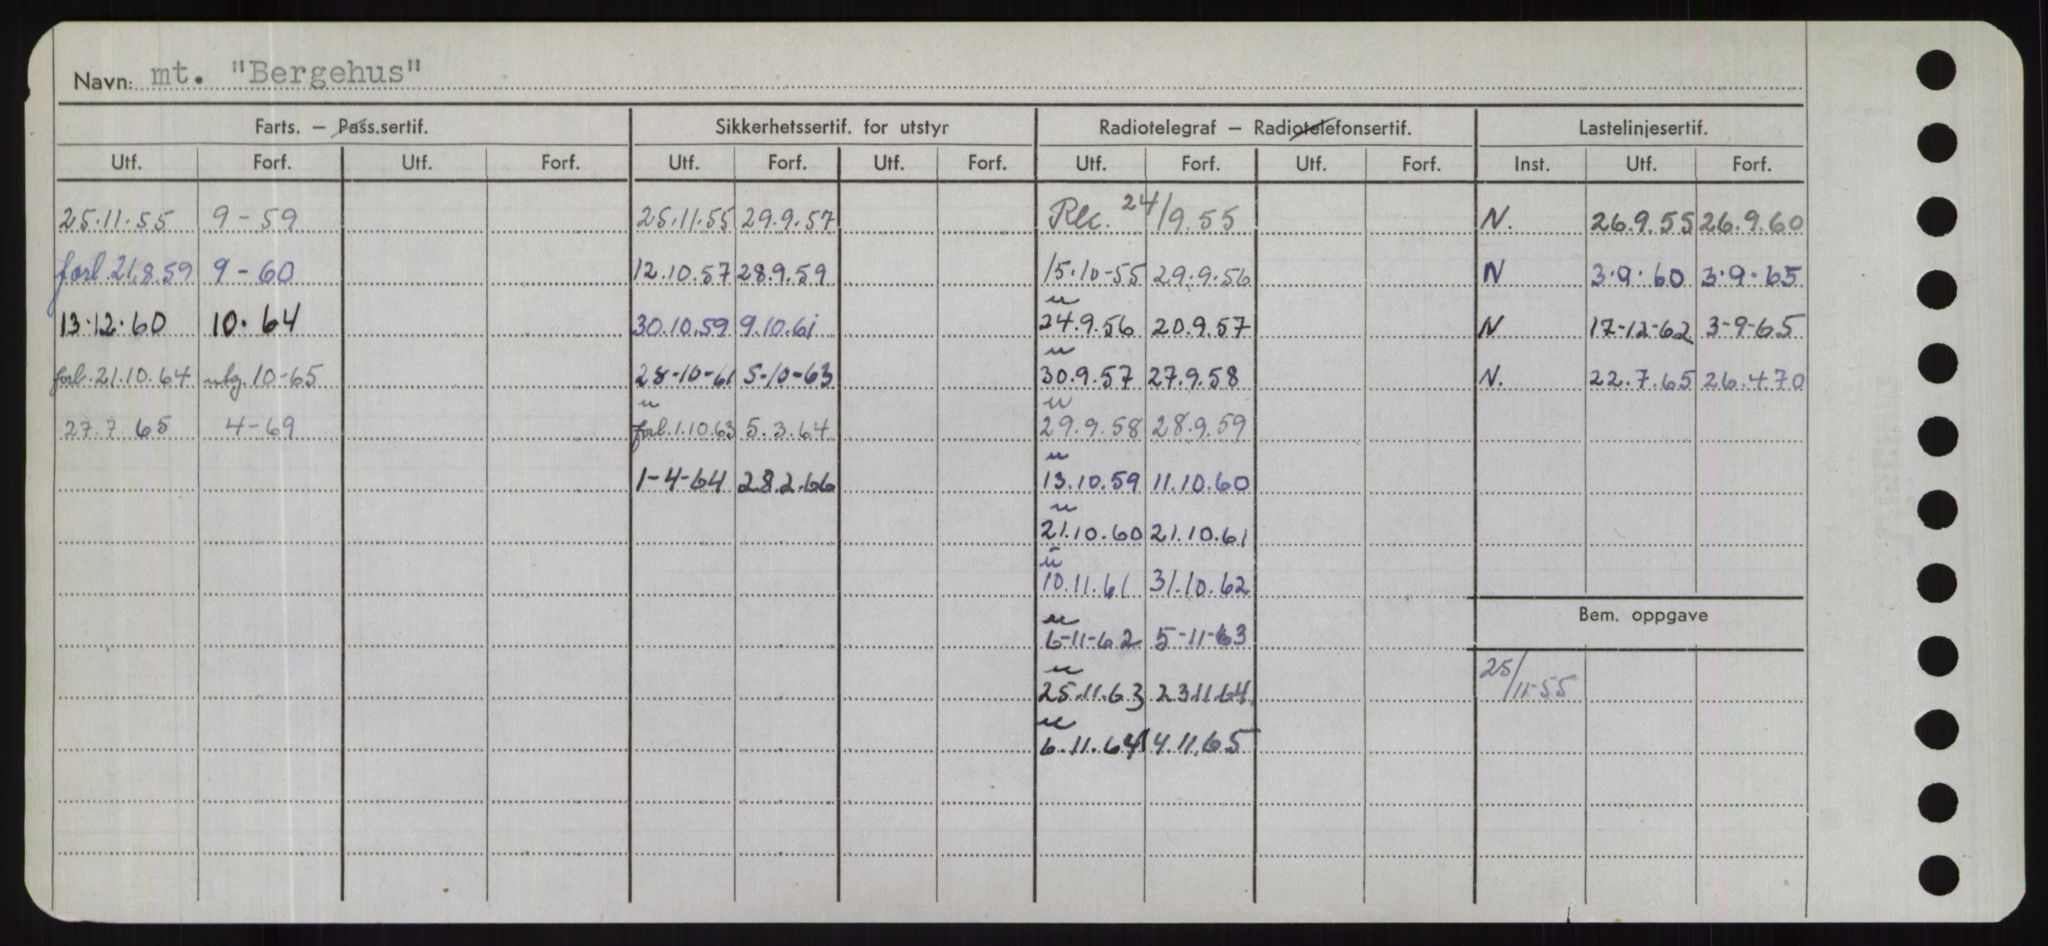 Navn: mt. "Bergehus"
Farts. – Pass.sertif. Sikkerhetssertif. for utstyr Radiotelegraf – Radiotelefonsertif. Lastelinjesertif.
Utf. Forf. Utf. Forf. Utf. Forf. Utf. Forf. Utf. Forf. Utf. Forf. Inst. Utf. Forf.
25.11.55 9-59 25.11.55 29.9.57 Rec. 24/9.55 N. 26.9.55 26.9.60
forl. 21.8.59 9-60 12.10.57 28.9.59 15.10-55 29.9.56 N 3.9.60 3.9.65
u
13.12.60 10.64 30.10.59 9.10.61 24.9.56 20.9.57 N 17-12-62 3-9-65
u
forl. 21.10.64 utg. 10-65 28-10-61 5-10-63 30.9.57 27.9.58 N. 22.7.65 26.4.70
u u
27.7.65 4-69 forl. 1.10.63 5.3.64 29.9.58 28.9.59
u
1-4-64 28.2.66 13.10.59 11.10.60
u
21.10.60 21.10.61
u
10.11.61 31.10.62
Bem. oppgave
u
6-11-62 5-11-63
u
25.11.63 23.11.64 25/11-55
u
6.11.64 4.11.65